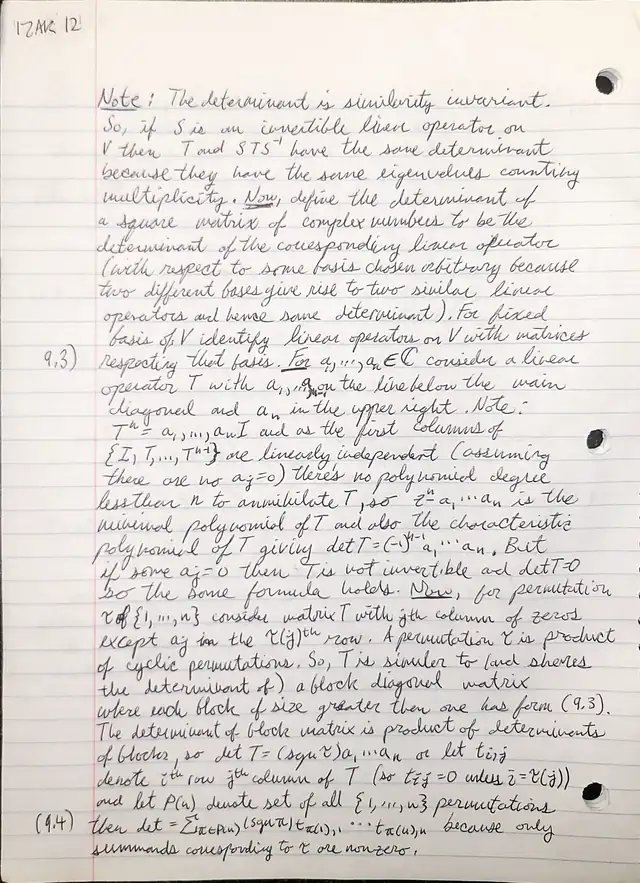 17 AK 12
Note: The determinant is similarity invariant.
So, if S is an invertible linear operator on
V then T and STS⁻¹ have the same determinant
because they have the same eigenvalues counting
multiplicity. Now, define the determinant of
a square matrix of complex numbers to be the
determinant of the corresponding linear operator
(with respect to some basis chosen arbitrary because
two different bases give rise to two similar linear
operators and hence same determinant). For fixed
basis of V identify linear operators on V with matrices
9.3) respecting that basis. For a₁,...,aₙ ∈ ℂ consider a linear
operator T with a₁,...,aₙ₋₁ on the line below the main
diagonal and aₙ in the upper right. Note:
Tⁿ = a₁,...,aₙI and as the first columns of
{I, T,..., Tⁿ⁻¹} are linearly independent (assuming
there are no aⱼ=0) there's no polynomial degree
less than n to annihilate T, so zⁿ-a₁...aₙ is the
minimal polynomial of T and also the characteristic
polynomial of T giving det T = (-1)ⁿ⁻¹a₁...aₙ. But
if some aⱼ=0 then T is not invertible and det T=0
so the same formula holds. Now, for permutation
τ of {1,...,n} consider matrix T with jth column of zeros
except aⱼ in the τ(j)ᵗʰ row. A permutation τ is product
of cyclic permutations. So, T is similar to (and shares
the determinant of) a block diagonal matrix
where each block of size greater then one has form (9.3).
The determinant of block matrix is product of determinants
of blocks, so det T = (sgn τ)a₁...aₙ or let tᵢ,ⱼ
denote iᵗʰ row jᵗʰ column of T (so tᵢ,ⱼ = 0 unless i = τ(j))
and let P(n) denote set of all {1,...,n} permutations
(9.4) then det = Σπ∈P(n) (sgn π) tπ(1),₁ ... tπ(n),n because only
summands corresponding to τ are nonzero.